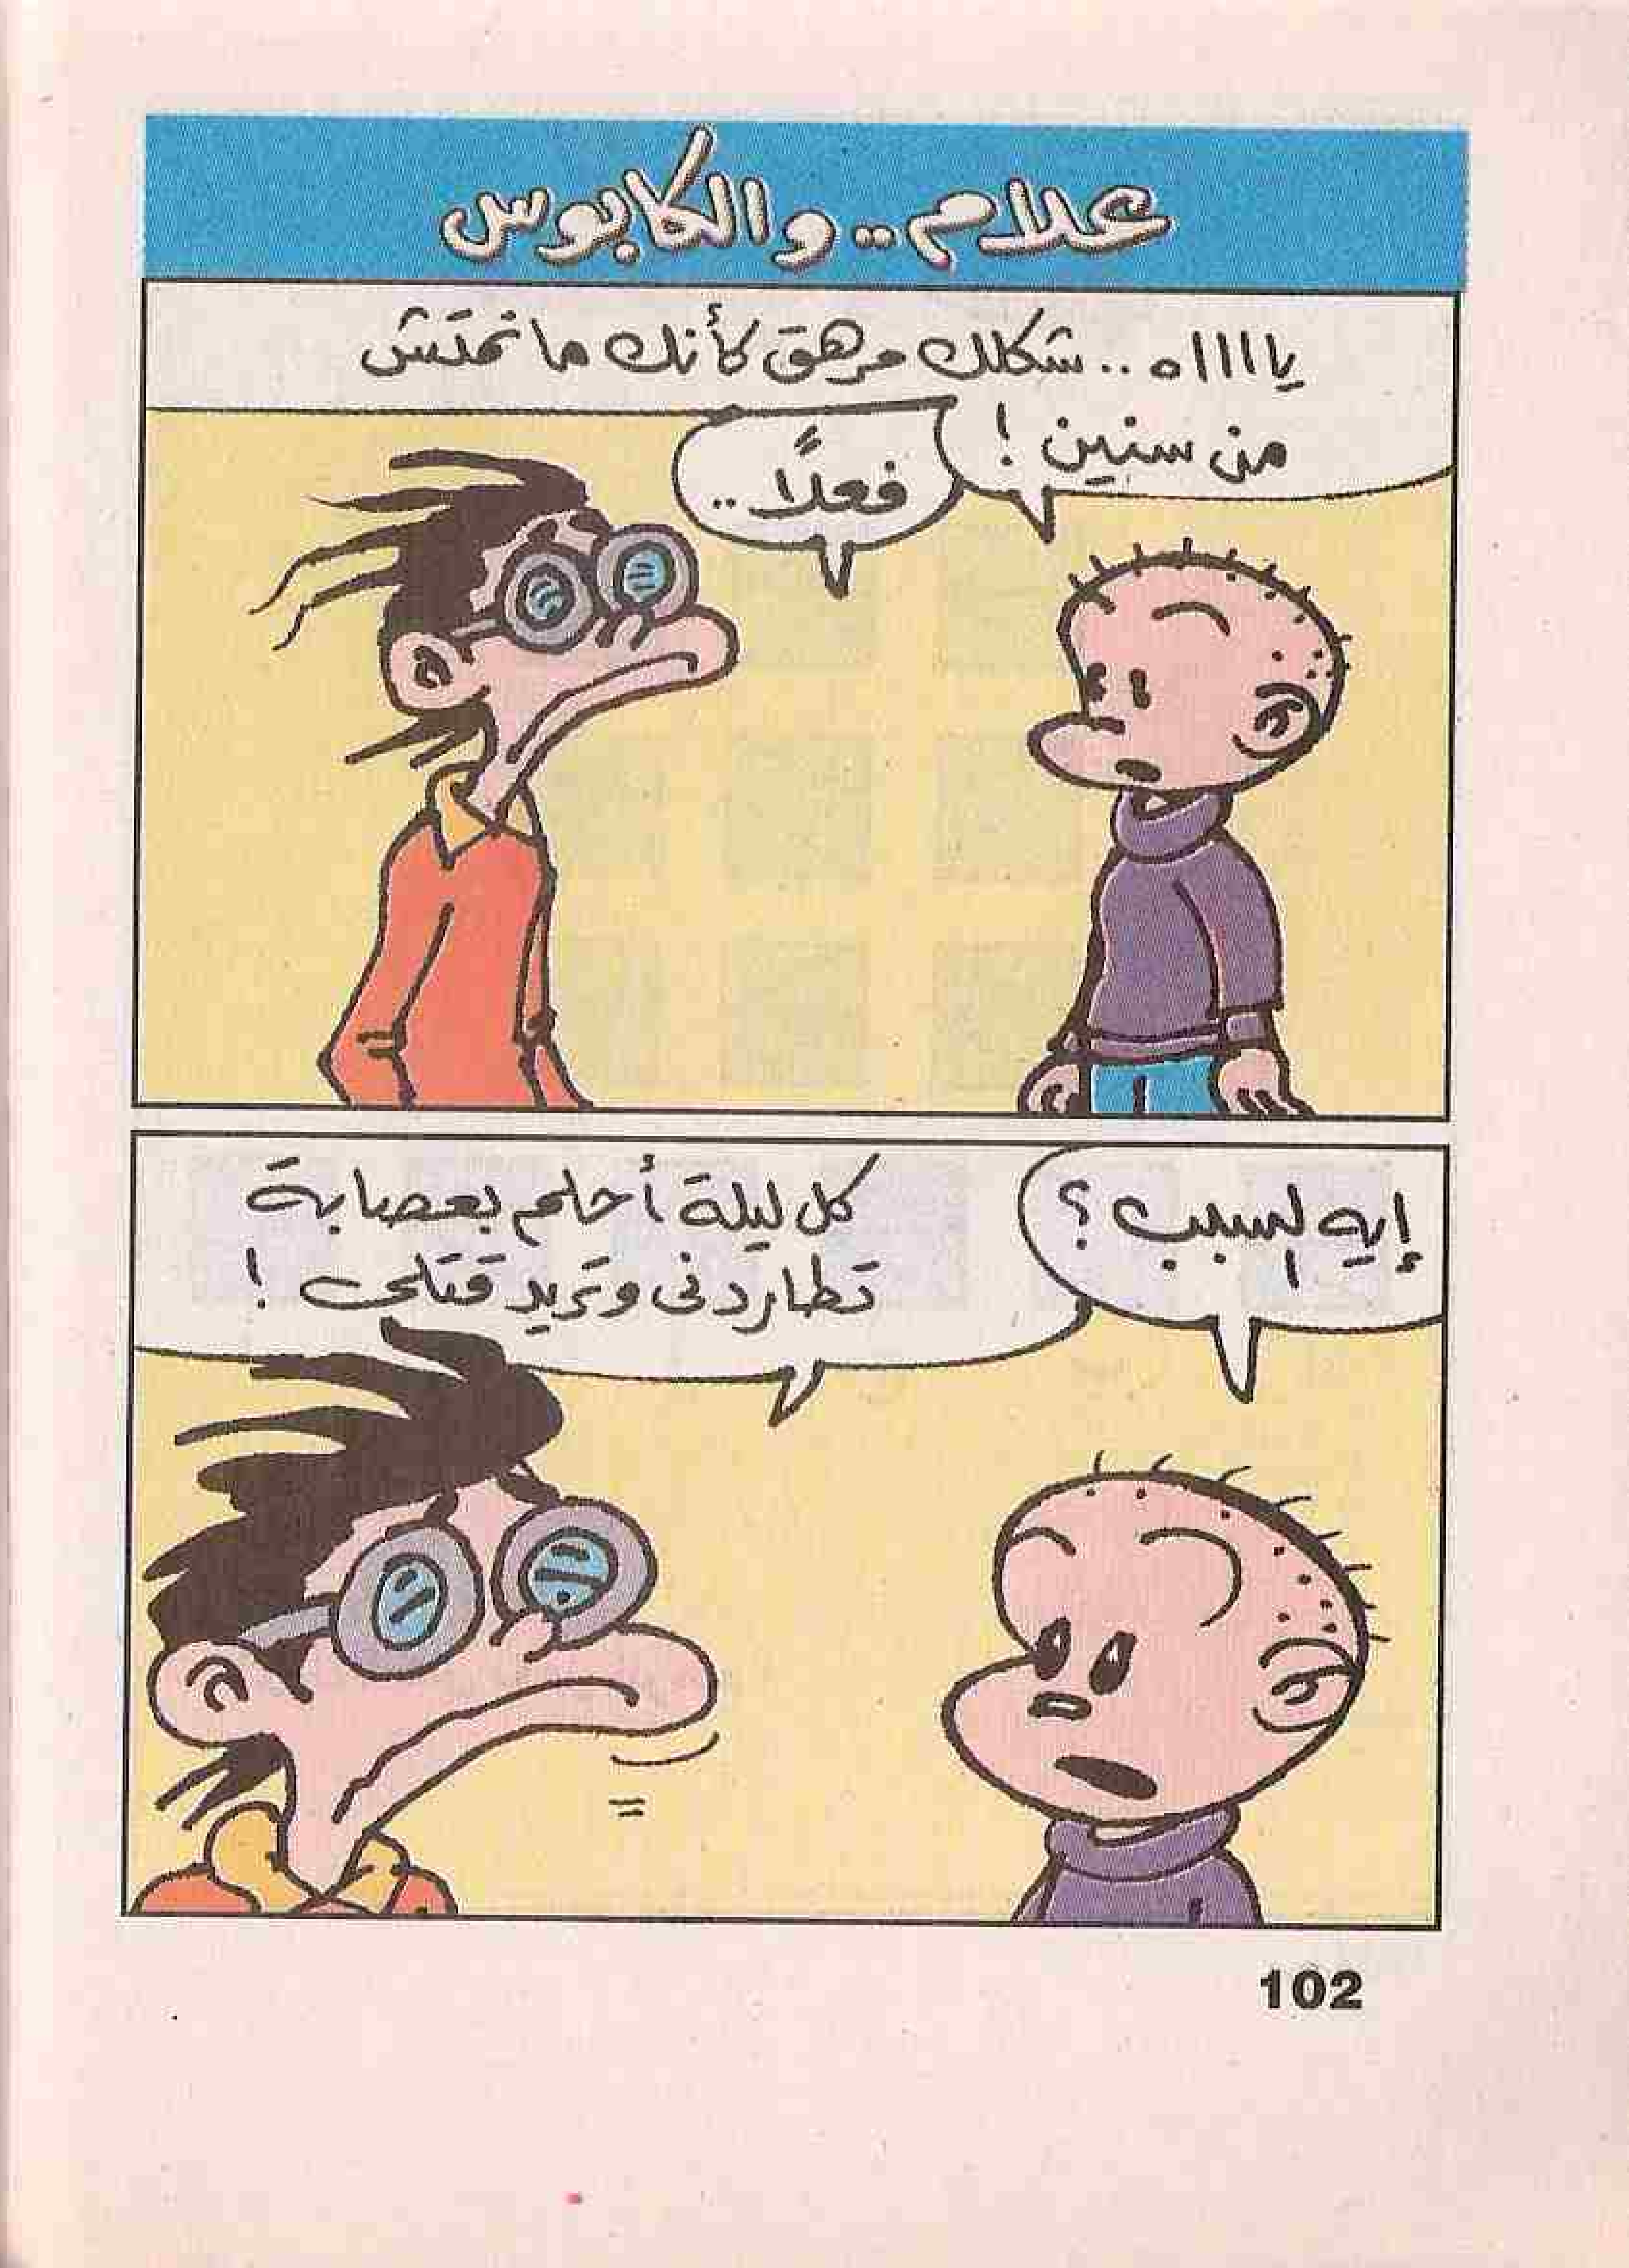 علام.. والكابوس
ياااااه.. شكلك مرهق كأنك ما نمتش
من سنين !
فعلاً ..
إيه السبب ؟
كل ليلة أحلم بعصابة
تطاردنى وتريد قتلى !
102